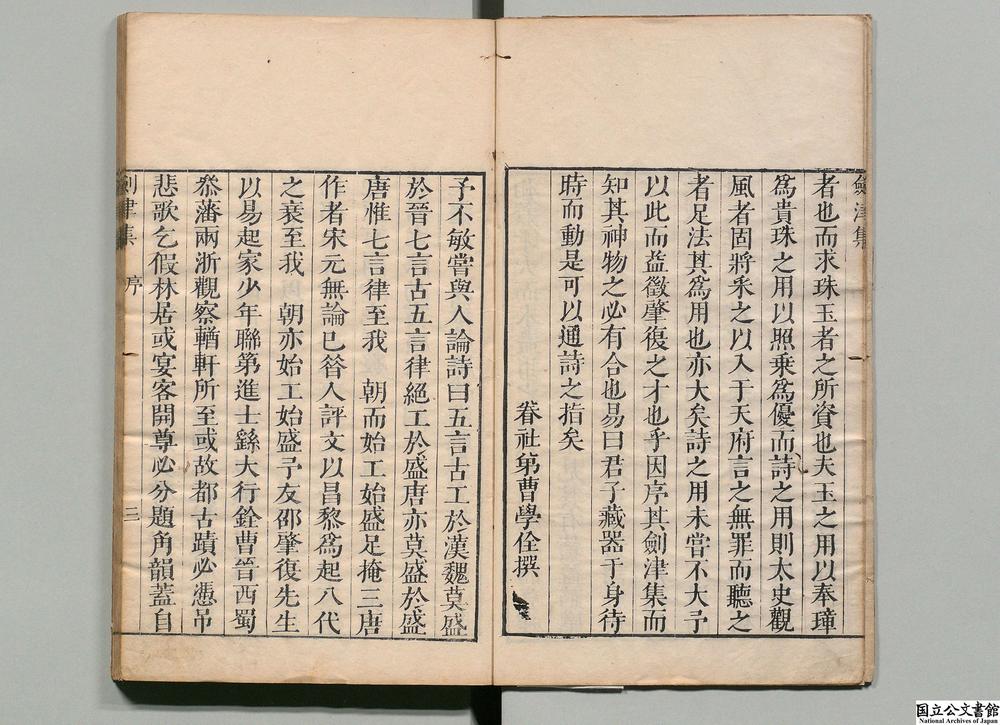 劍津集
者也而求珠玉者之所資也夫玉之用以奉璋
爲貴珠之用以照乘爲優而詩之用則太史觀
風者固將釆之以入于天府言之無罪而聽之
者足法其爲用也亦大矣詩之用未嘗不大予
以此而益徵肇復之才也乎因序其劍津集而
知其神物之必有合也易曰君子藏器于身待
時而動是可以通詩之指矣
眷社第曹學佺撰
予不敏嘗與人論詩曰五言古工於漢魏莫盛
於晉七言古五言律絕工於盛唐亦莫盛於盛
唐惟七言律至我 朝而始工始盛足掩三唐
作者宋元無論已昝人評文以昌黎爲起八代
之衰至我 朝亦始工始盛予友邵肇復先生
以易起家少年聯第進士繇大行銓曹晉西蜀
叅藩兩浙觀察輶軒所至或故都古蹟必憑吊
悲歌乞假林居或宴客開尊必分題角韻蓋自
劍津集 序 三
国立公文書館
National Archives of Japan